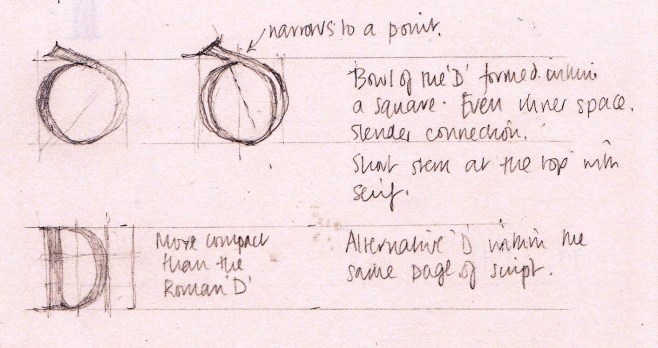 narrows to a point.
Bowl of the 'D' formed within
a square. Even inner space.
Slender connection.
Short stem at the top with
serif.
More compact
than the
Roman 'D'
Alternative 'D' within the
same page of script.